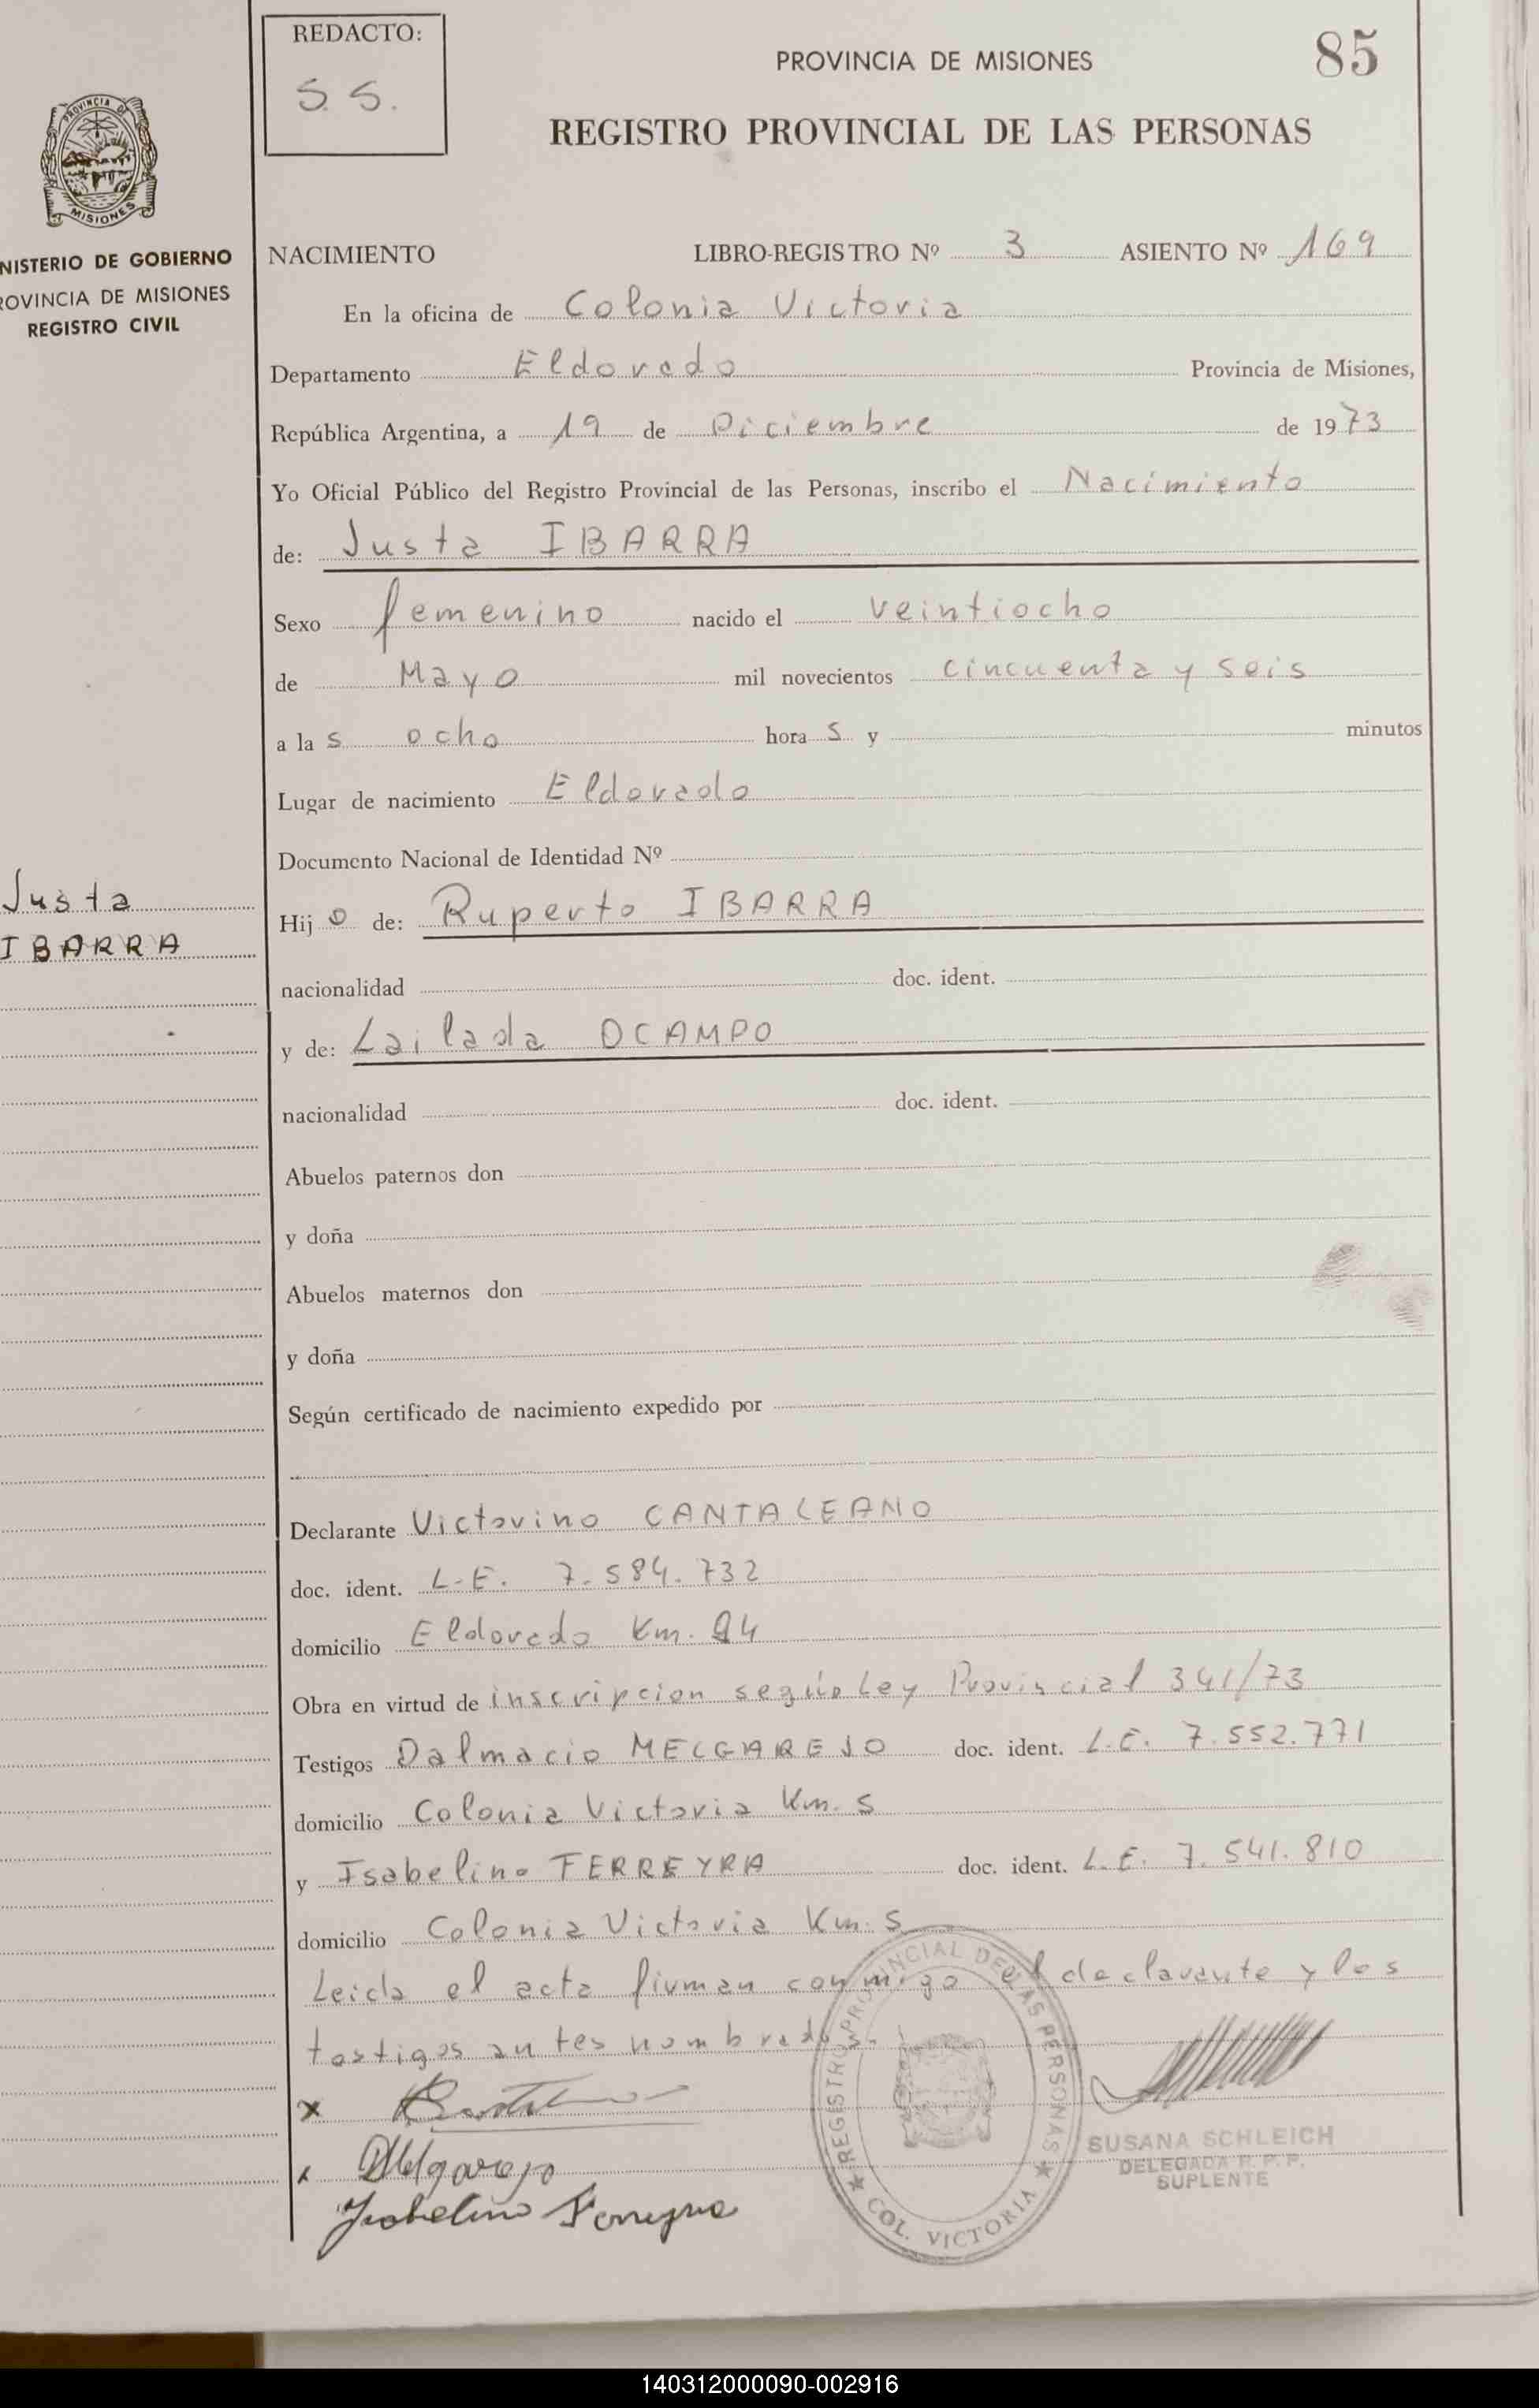 REDACTO:
S. S.
PROVINCIA DE MISIONES
85
REGISTRO PROVINCIAL DE LAS PERSONAS
PROVINCIA DE
MISIONES
NISTERIO DE GOBIERNO
ROVINCIA DE MISIONES
REGISTRO CIVIL
NACIMIENTO LIBRO-REGISTRO Nº 3 ASIENTO Nº 169
En la oficina de Colonia Victoria
Departamento Eldorado Provincia de Misiones,
República Argentina, a 19 de Diciembre de 1973
Yo Oficial Público del Registro Provincial de las Personas, inscribo el Nacimiento
de: Justa IBARRA
Sexo femenino nacido el veintiocho
de Mayo mil novecientos cincuenta y seis
a las ocho horas y minutos
Lugar de nacimiento Eldorado
Documento Nacional de Identidad Nº
Justa
IBARRA
Hijo de: Ruperto IBARRA
nacionalidad doc. ident.
y de: Lailada OCAMPO
nacionalidad doc. ident.
Abuelos paternos don
y doña
Abuelos maternos don
y doña
Según certificado de nacimiento expedido por
Declarante Victorino CANTALEANO
doc. ident. L.E. 7.584.732
domicilio Eldorado Km.
Obra en virtud de inscripcion según Ley Provincial 341/73
Testigos Dalmacio MELGAREJO doc. ident. L.E. 7.552.771
domicilio Colonia Victoria Km. 5
y Isabelino FERREYRA doc. ident. L.E. 7.541.810
domicilio Colonia Victoria Km. 5
Leida el acta firman conmigo el declarante y los
testigos antes nombrados.
x
x DMelgarejo
Isabelino Ferreyra
REGISTRO PROVINCIAL DE LAS PERSONAS
COL. VICTORIA
SUSANA SCHLEICH
DELEGADA R. P. P.
SUPLENTE
140312000090-002916